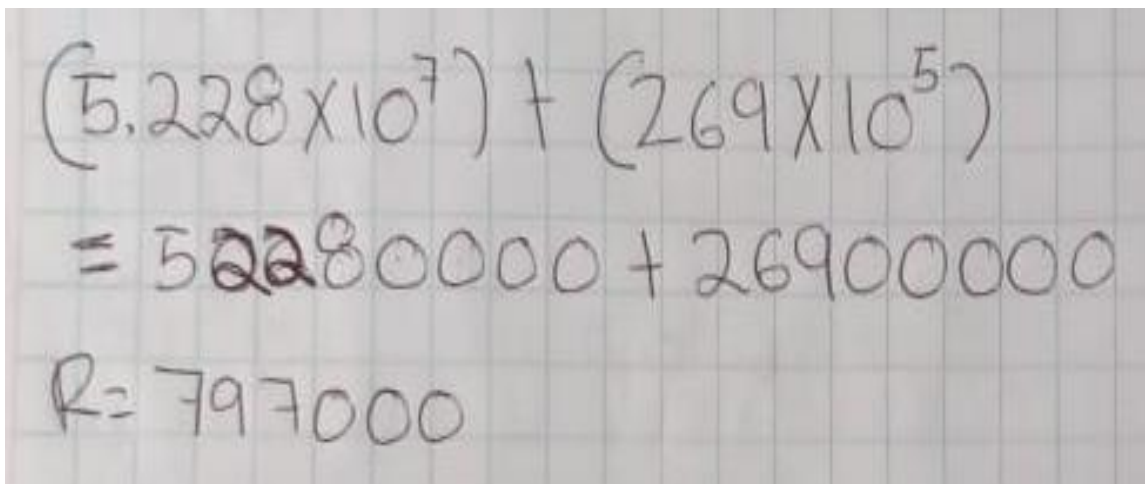 (5.228x10⁷) + (269x10⁵)
= 52280000 + 26900000
R= 797000